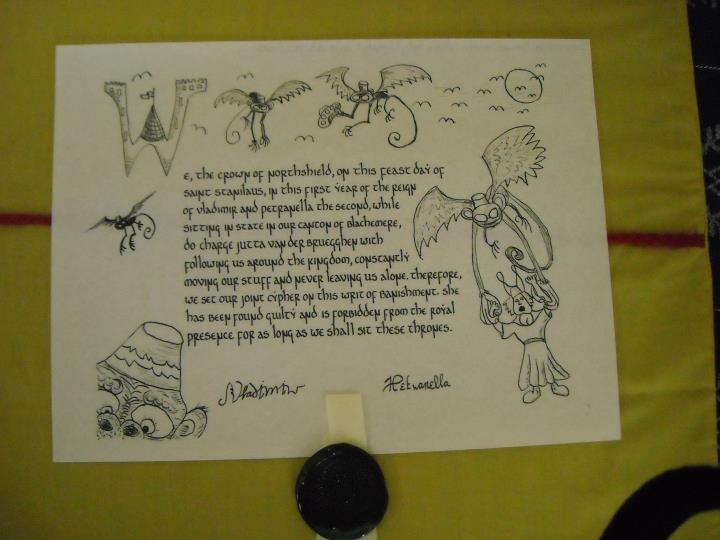 We, the crown of Northshield, on this feast day of
Saint Stanilaus, in this first year of the reign
of Vladimir and Petranella the second, while
sitting in state in our canton of Blachemere,
do charge Jutta van der Bruegghen with
following us around the kingdom, constantly
moving our stuff and never leaving us alone. Therefore,
we set our joint cypher on this writ of banishment. She
has been found guilty and is forbidden from the royal
presence for as long as we shall sit these thrones.
Vladimir Petranella